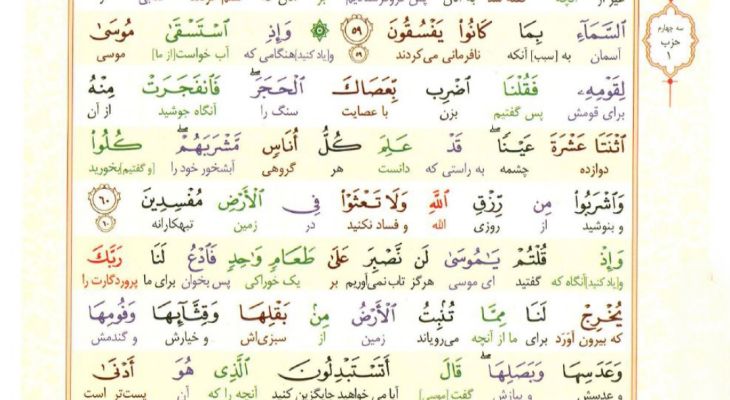 سه چهارم
حزب
۱
ٱلسَّمَآءِ بِمَا كَانُوا۟ يَفْسُقُونَ ﴿٥٩﴾ ۞ وَإِذِ ٱسْتَسْقَىٰ مُوسَىٰ
آسمان به [سبب] آنکه نافرمانی می‌کردند ۵۹ و[یاد کنید]هنگامی که آب خواست[از ما] موسی
لِقَوْمِهِۦ فَقُلْنَا ٱضْرِب بِّعَصَاكَ ٱلْحَجَرَ ۖ فَٱنفَجَرَتْ مِنْهُ
برای قومش پس گفتیم بزن با عصایت سنگ را آنگاه جوشید از آن
ٱثْنَتَا عَشْرَةَ عَيْنًا ۖ قَدْ عَلِمَ كُلُّ أُنَاسٍ مَّشْرَبَهُمْ ۖ كُلُوا۟
دوازده چشمه به راستی که دانست هر گروهی آبشخور خود را [و گفتیم]بخورید
وَٱشْرَبُوا۟ مِن رِّزْقِ ٱللَّهِ وَلَا تَعْثَوْا۟ فِى ٱلْأَرْضِ مُفْسِدِينَ ﴿٦٠﴾
و بنوشید از روزی الله و فساد نکنید در زمین تبهکارانه ۶۰
وَإِذْ قُلْتُمْ يَـٰمُوسَىٰ لَن نَّصْبِرَ عَلَىٰ طَعَامٍ وَٰحِدٍ فَٱدْعُ لَنَا رَبَّكَ
و[یاد کنید]آنگاه که گفتید ای موسی هرگز تاب نمی‌آوریم بر یک خوراکی پس بخوان برای ما پروردگارت را
يُخْرِجْ لَنَا مِمَّا تُنۢبِتُ ٱلْأَرْضُ مِنۢ بَقْلِهَا وَقِثَّآئِهَا وَفُومِهَا
که بیرون آوَرَد برای ما از آنچه می‌رویاند زمین از سبزی‌اش و خیارش و گندمش
وَعَدَسِهَا وَبَصَلِهَا ۖ قَالَ أَتَسْتَبْدِلُونَ ٱلَّذِى هُوَ أَدْنَىٰ
و عدسش و پیازش گفت[موسی] آیا می خواهید جایگزین کنید آنچه را که آن پست‌تر است